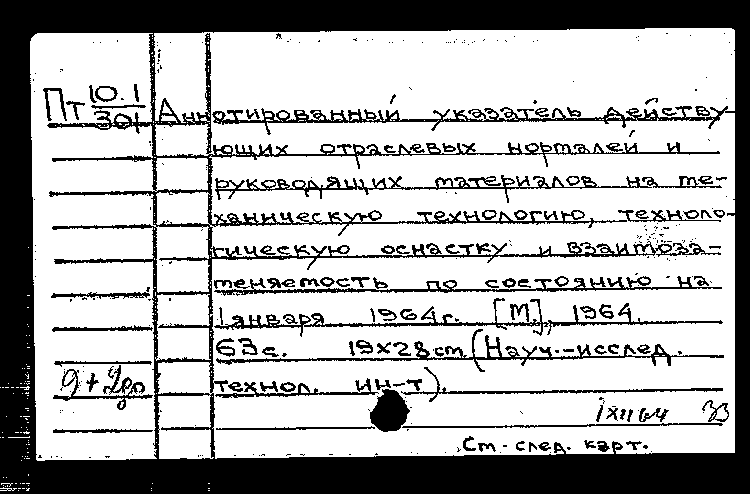 Пт 10.1/301 Аннотированный указатель действу-
ющих отраслевых норmалей и
руководящих материалов на ме-
ханическую технологию, техноло-
гическую оснастку и взаимоза-
меняемость по состоянию на
1 января 1964г. [М.], 1964.
63с. 19х28см (Науч.-исслед.
технол. ин-т).
1 XII 64 33
См. след. карт.